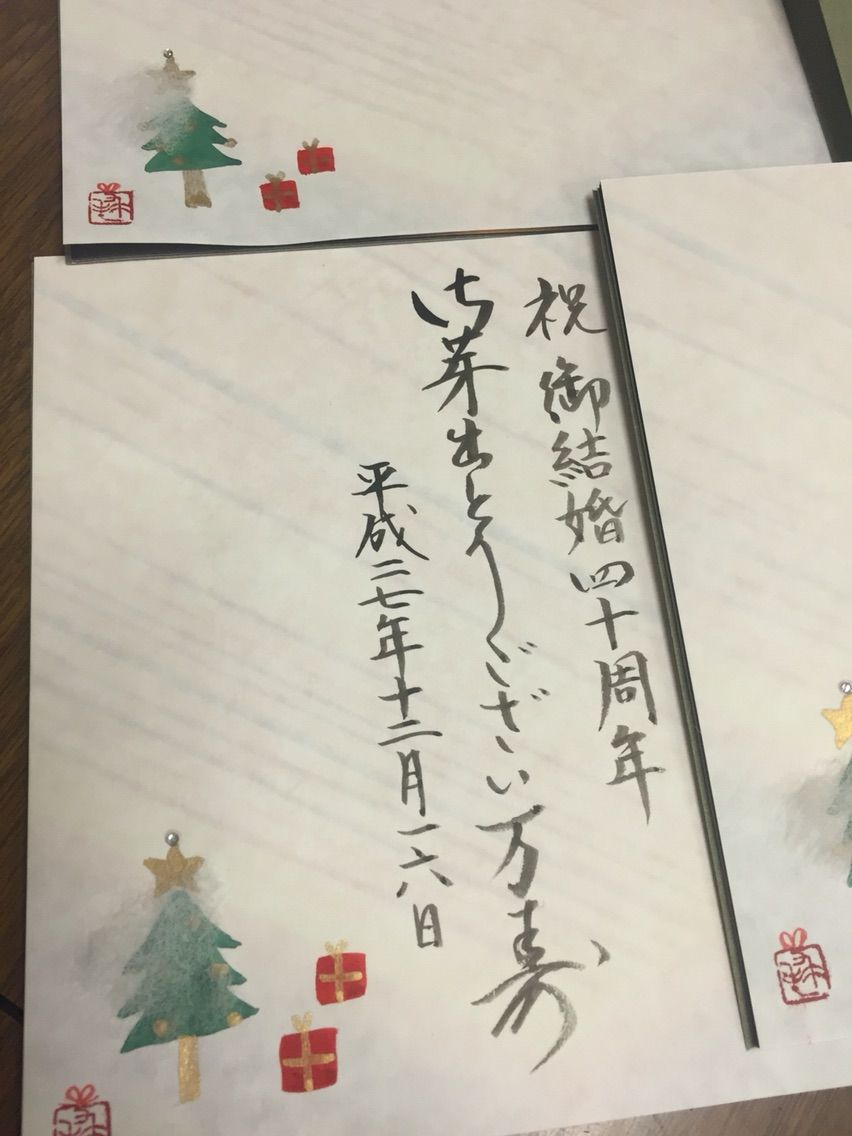 祝 御結婚四十周年
御芽出とうございい万寿
平成二七年十二月一六日